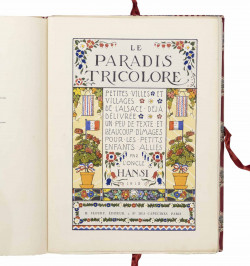 LE
PARADIS
TRICOLORE
PETITES VILLES ET
VILLAGES
DE L'ALSACE DÉJÀ
DÉLIVRÉE
UN PEU DE TEXTE ET
BEAUCOUP D'IMAGES
POUR LES PETITS
ENFANTS ALLIÉS
PAR
L'ONCLE
HANSI
1918
H. FLOURY, EDITEUR
PARIS